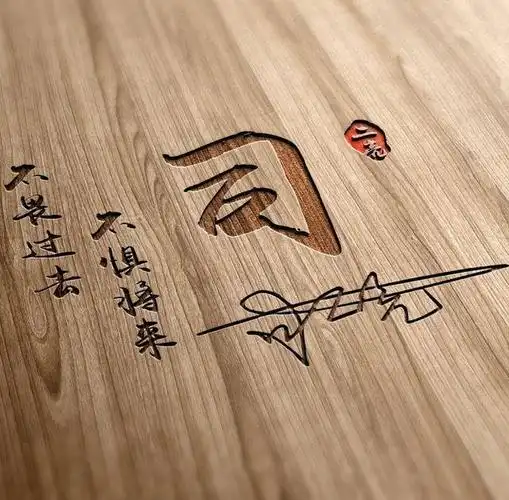 不畏过去
不惧将来
司
二亮